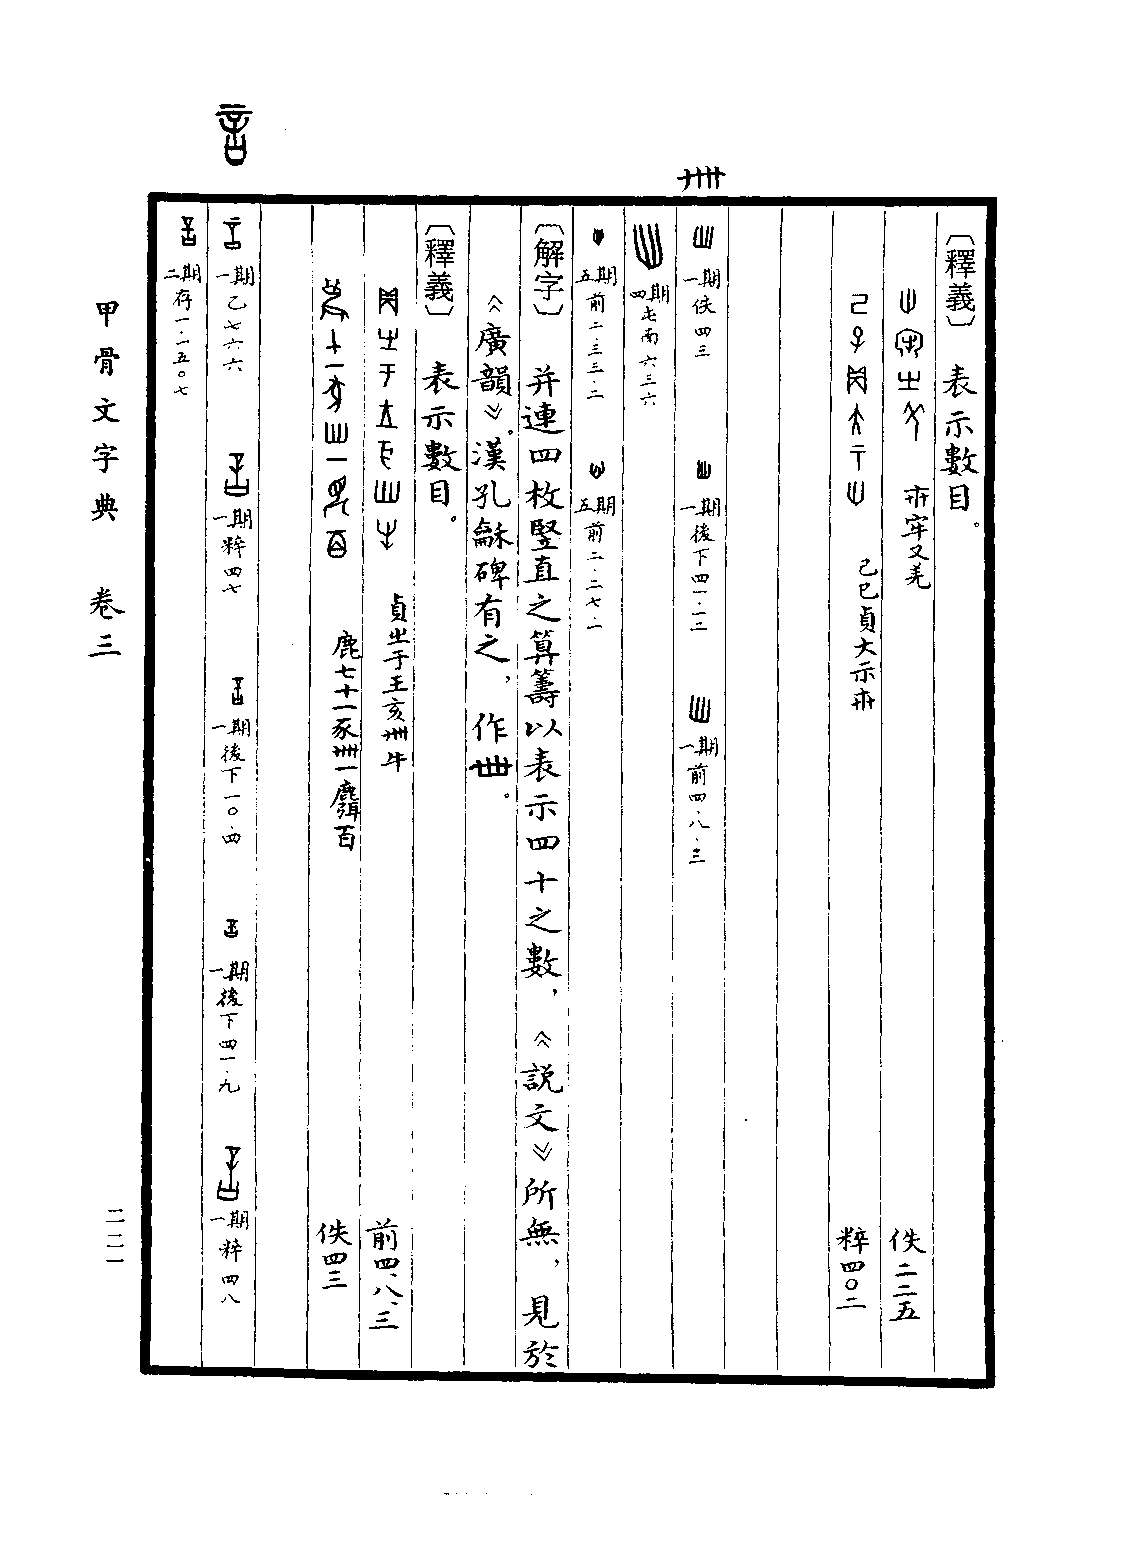 〔釋義〕　表示數目。
卅牢又羌　佚二二五
己巳貞大示卅　粹四〇二
卌
一期佚四三　一期後下四一·一二　一期前四·八·三
四期屯南六三六
五期前二·三三·二　五期前二·二七·一
〔解字〕　并連四枚豎直之算籌以表示四十之數，《說文》所無，見於
《廣韻》。漢孔龢碑有之，作卌。
〔釋義〕　表示數目。
貞㞢于王亥卌牛　前四、八、三
鹿七十一豕卌一麑百　佚四三
言
一期乙七六六　一期粹四七　一期後下一〇·四　一期後下四一·九　一期粹四八
二期存一·一五〇七
甲骨文字典　卷三　二二一